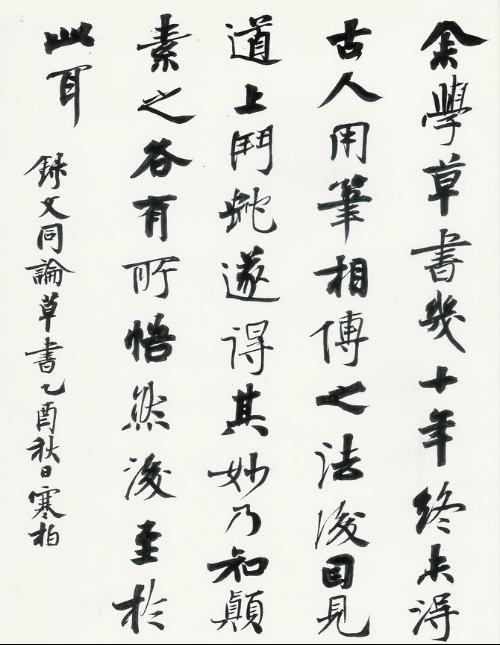 余學草書幾十年終未得
古人用筆相傳之法後因見
道上鬥蛇遂得其妙乃知顛
素之各有所悟然後至於
此耳
錄文同論草書乙酉秋日寒柏